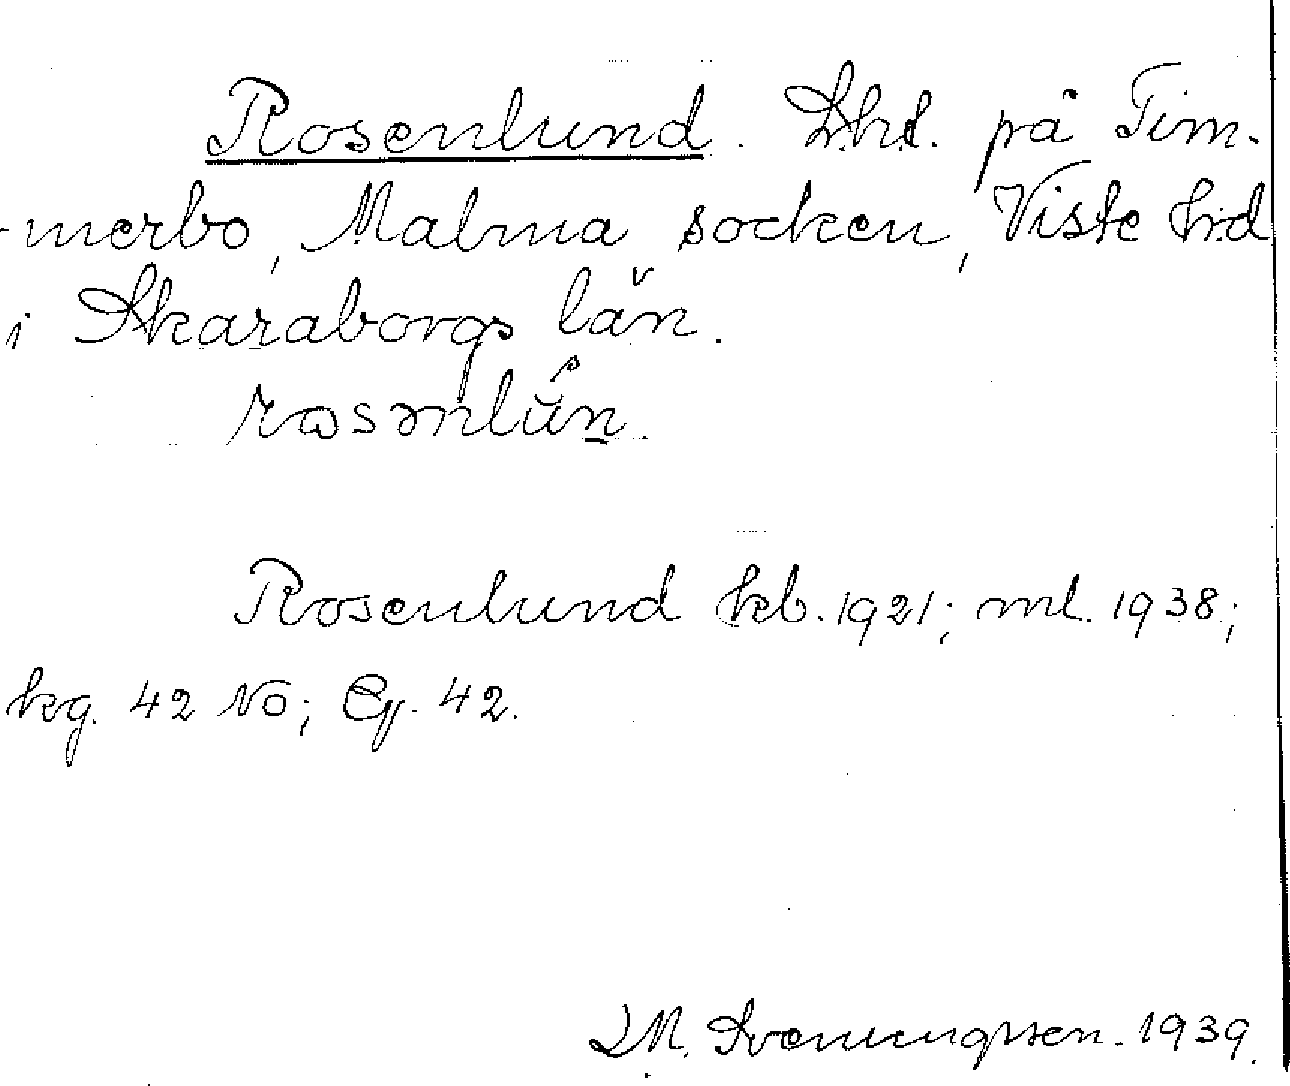 Rosenlund. Lht. på Tim-
-merbo, Malma socken, Viste hrd
i Skaraborgs län.
rosənlûn.
Rosenlund kb. 1921; ml. 1938;
kg. 42 NO; Eg. 42.
M. Svenungsson. 1939.